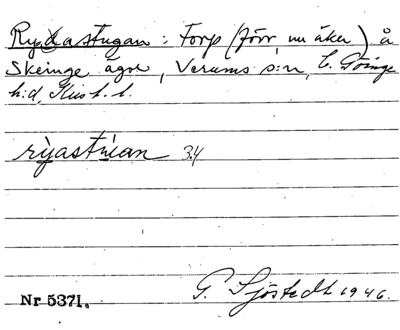 Rydastugan: Torp (förr, nu åker) å
Skeinge ägor, Verums s:n, V. Göinge
h:d, Kris h. l.
rỳastúan 34
Nr 5371.
G. Sjöstedt 1946.